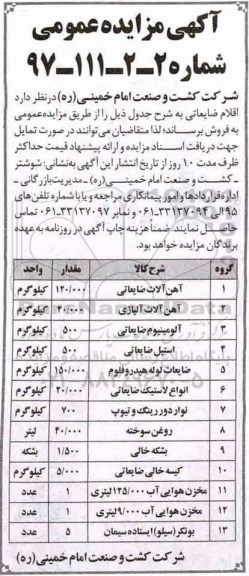 آگهی مزایده عمومی
شماره ۲-۲-۱۱۱-۹۷
شرکت کشت و صنعت امام خمینی (ره) در نظر دارد
اقلام ضایعاتی به شرح جدول ذیل را از طریق مزایده عمومی
به فروش برساند؛ لذا متقاضیان می‌توانند در صورت تمایل
جهت دریافت اسناد مزایده و ارائه پیشنهاد قیمت حداکثر
ظرف مدت ۱۰ روز از تاریخ انتشار این آگهی به نشانی: شوشتر
- کشت و صنعت امام خمینی (ره) - مدیریت بازرگانی -
اداره قراردادها و امور پیمانکاری مراجعه و یا با شماره تلفن‌های
۹۵ الی ۳۳۱۳۷۰۹۴-۰۶۱ و نمابر ۳۳۱۳۷۰۹۷-۰۶۱ تماس
حاصل نمایند. ضمناً هزینه چاپ آگهی در روزنامه به عهده
برندگان مزایده خواهد بود.
گروه شرح کالا مقدار واحد
۱ آهن آلات ضایعاتی ۱۲۰/۰۰۰ کیلوگرم
۲ آهن آلات آلیاژی ۴۰/۰۰۰ کیلوگرم
۳ آلومینیوم ضایعاتی ۵۰۰ کیلوگرم
۴ استیل ضایعاتی ۵۰۰ کیلوگرم
۵ ضایعات لوله هیدروفلوم ۱۵۰/۰۰۰ کیلوگرم
۶ انواع لاستیک ضایعاتی ۲۰/۰۰۰ کیلوگرم
۷ نوار دور رینگ و تیوپ ۷۰۰ کیلوگرم
۸ روغن سوخته ۴۰/۰۰۰ لیتر
۹ بشکه خالی ۱/۵۰۰ بشکه
۱۰ کیسه خالی ضایعاتی ۵/۰۰۰ کیلوگرم
۱۱ مخزن هوایی آب ۱۲۵/۰۰۰ لیتری ۱ عدد
۱۲ مخزن هوایی آب ۹/۰۰۰ لیتری ۱ عدد
۱۳ بونکر (سیلو) ایستاده سیمان ۵ عدد
شرکت کشت و صنعت امام خمینی (ره)